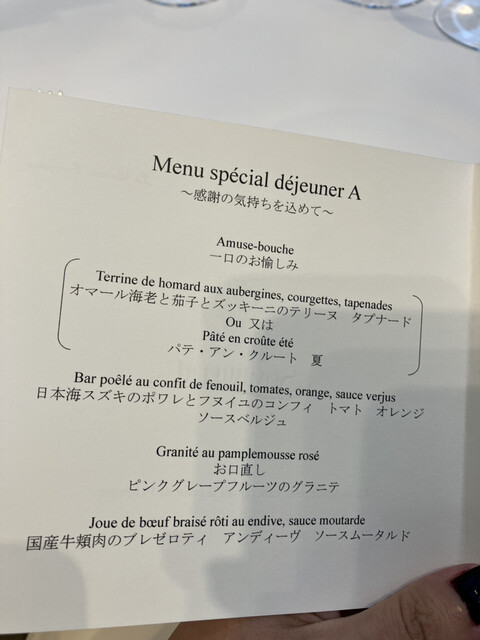 Menu spécial déjeuner A
～感謝の気持ちを込めて～
Amuse-bouche
一口のお愉しみ
Terrine de homard aux aubergines, courgettes, tapenades
オマール海老と茄子とズッキーニのテリーヌ　タプナード
Ou 又は
Pâté en croûte été
パテ・アン・クルート　夏
Bar poêlé au confit de fenouil, tomates, orange, sauce verjus
日本海スズキのポワレとフヌイユのコンフィ　トマト　オレンジ
ソースベルジュ
Granité au pamplemousse rosé
お口直し
ピンクグレープフルーツのグラニテ
Joue de bœuf braisé rôti au endive, sauce moutarde
国産牛頬肉のブレゼロティ　アンディーヴ　ソースムータルド